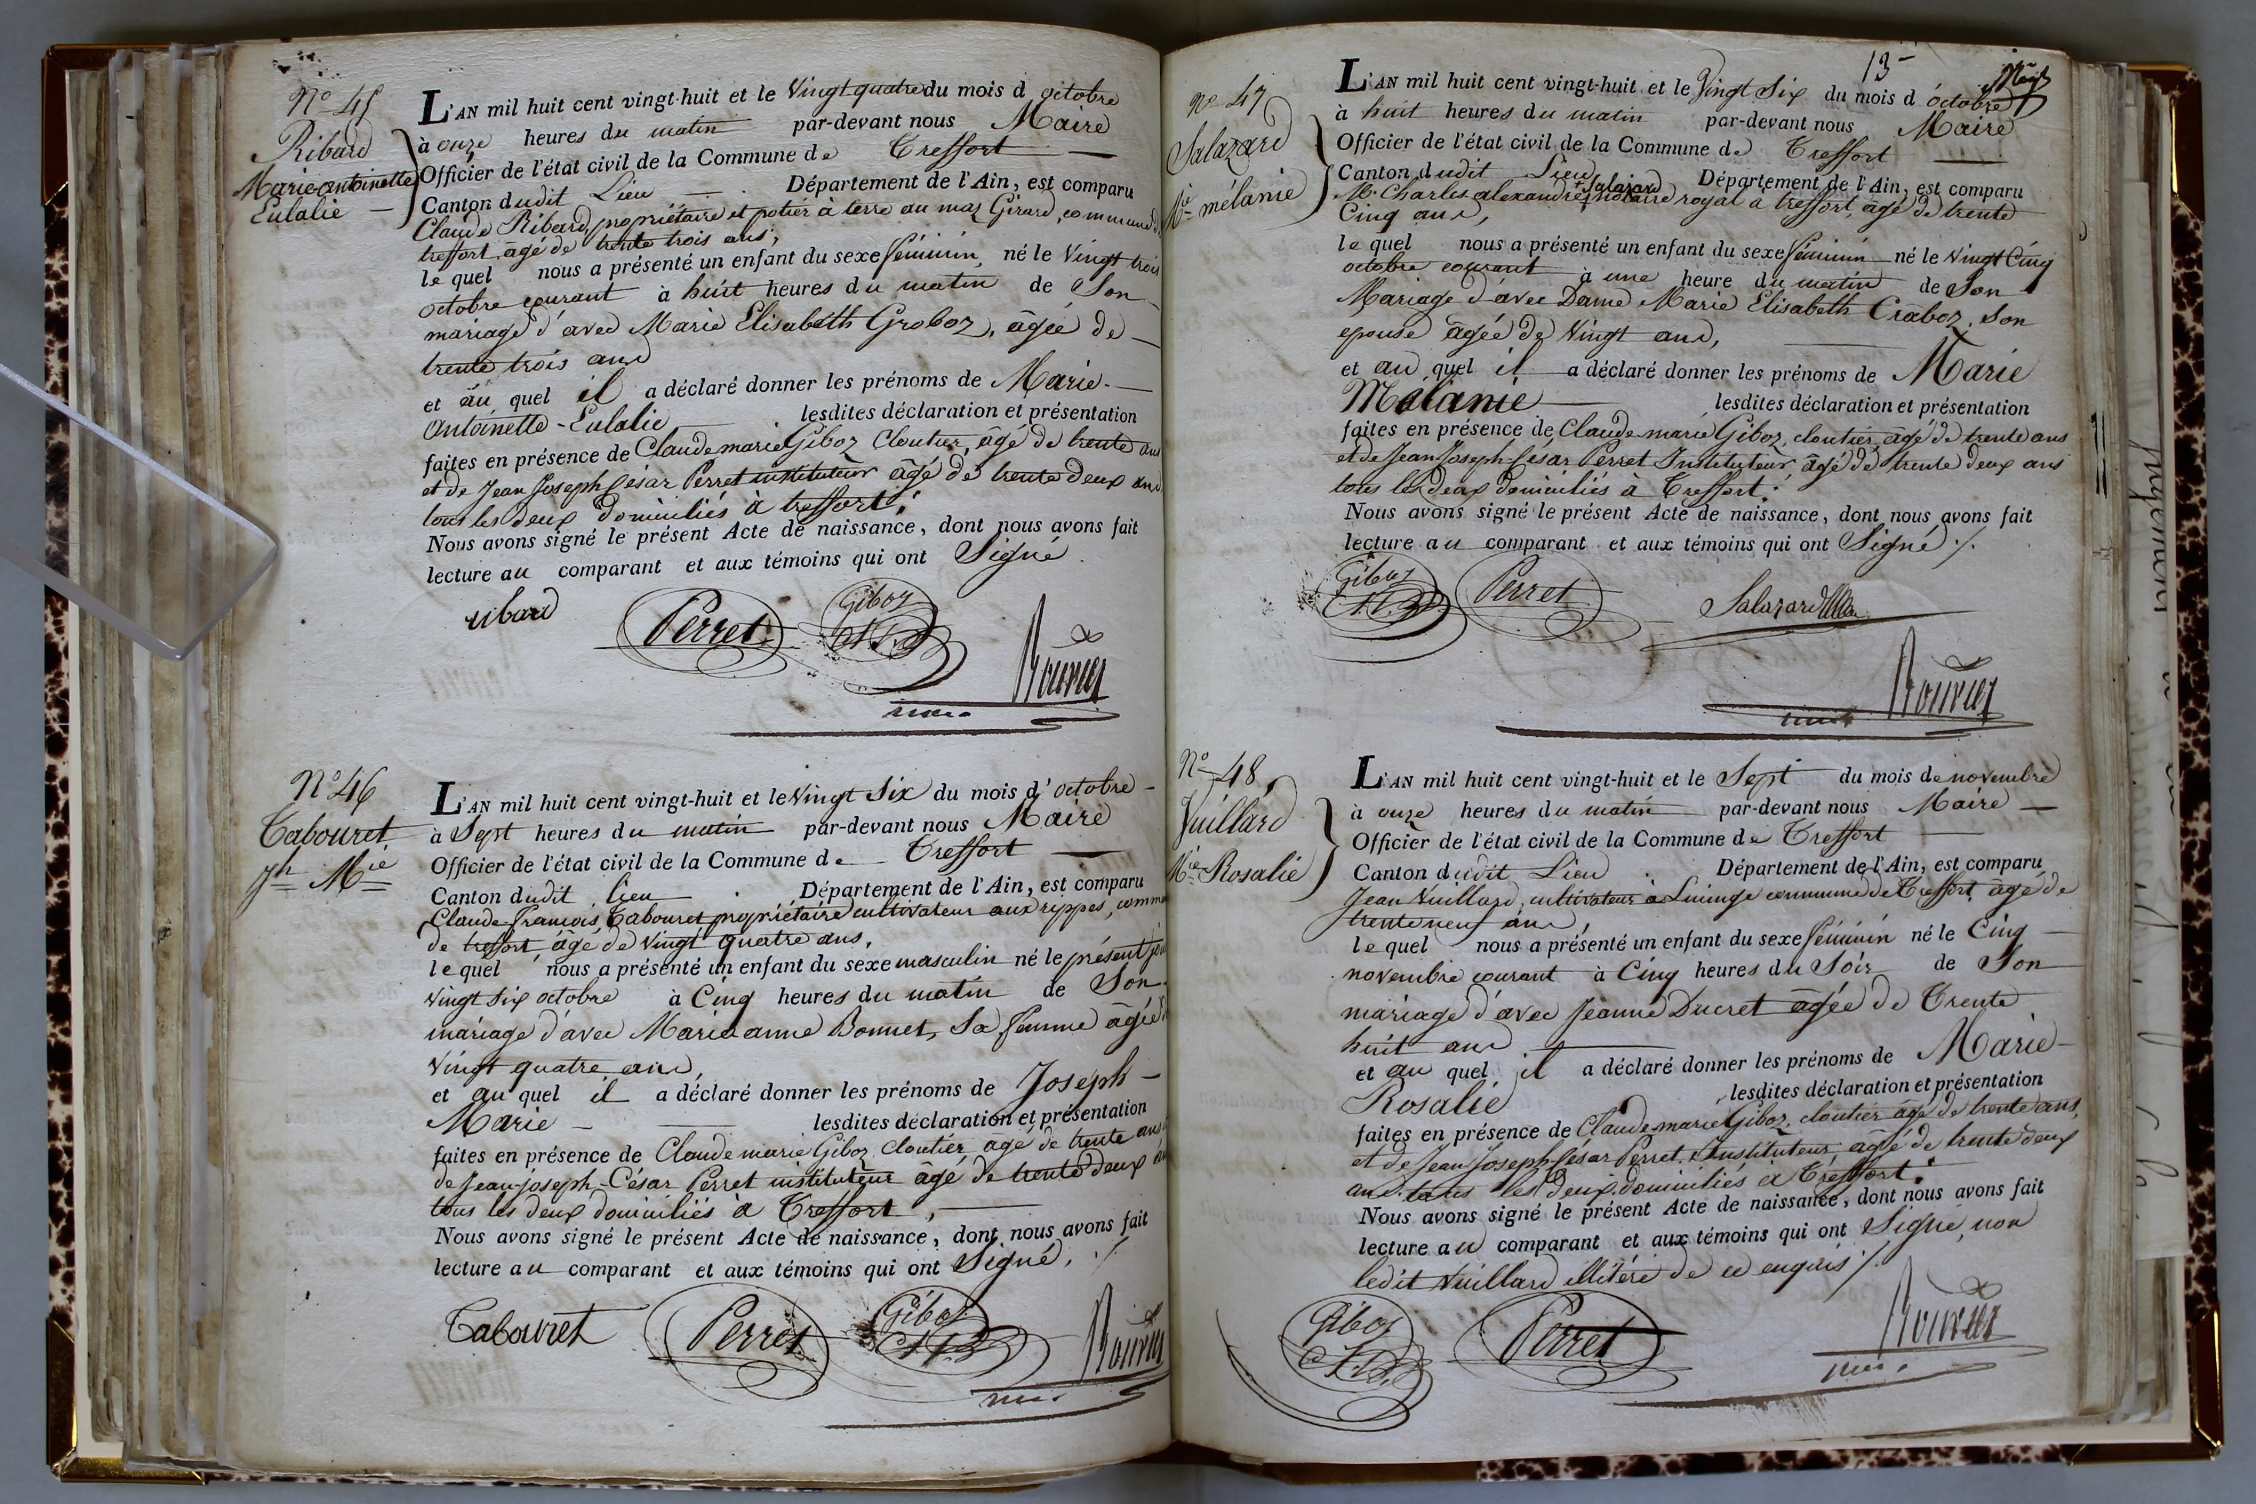 N° 45
Ribard
Marie antoinette
Eulalie
L'AN mil huit cent vingt-huit et le Vingt quatre du mois d octobre
à onze heures du matin par-devant nous Maire
Officier de l'état civil de la Commune de Treffort
Canton dudit Lieu . Département de l'Ain, est comparu
Claude Ribard, propriétaire et potier à terre au mas Girard, commune de
treffort, âgé de trente trois ans,
lequel nous a présenté un enfant du sexe féminin né le Vingt trois
octobre courant à huit heures du matin de Son
mariage d'avec Marie Elisabeth Groboz, âgée de
trente trois ans
et au quel il a déclaré donner les prénoms de Marie-
Antoinette-Eulalie lesdites déclaration et présentation
faites en présence de Claude marie Giboz cloutier, âgé de trente ans
et de Jean Joseph César Perret instituteur âgé de trente deux ans
tous les deux domiciliés à treffort.
Nous avons signé le présent Acte de naissance, dont nous avons fait
lecture au comparant et aux témoins qui ont Signé
ribard Perret Giboz
Bouvier
N° 46
Tabouret
Jh Mie
L'AN mil huit cent vingt-huit et le Vingt Six du mois d'octobre
à Sept heures du matin par-devant nous Maire
Officier de l'état civil de la Commune de Treffort
Canton dudit lieu . Département de l'Ain, est comparu
Claude-françois Tabouret propriétaire cultivateur aux rippes,
de treffort, âgé de Vingt quatre ans,
lequel nous a présenté un enfant du sexe masculin né le présent jour
vingt six octobre à Cinq heures du matin de Son
mariage d'avec Marie anne Bonnet, Sa femme âgée
Vingt quatre ans,
et au quel il a déclaré donner les prénoms de Joseph-
Marie - lesdites déclaration et présentation
faites en présence de Claude marie Giboz, cloutier, agé de trente ans
de Jean-joseph-César Perret instituteur âgé de trente deux
tous les deux domiciliés à Treffort,
Nous avons signé le présent Acte de naissance, dont nous avons fait
lecture au comparant et aux témoins qui ont Signé. /.
Tabouret Perret Giboz Bouvier
13
N° 47
Salazard
Mie mélanie
L'AN mil huit cent vingt-huit et le Vingt Six du mois d'octobre
à huit heures du matin par-devant nous Maire
Officier de l'état civil de la Commune de Treffort
Canton dudit Lieu . Département de l'Ain, est comparu
Mr Charles alexandre Salazard notaire royal à treffort, âgé de trente
Cinq ans,
lequel nous a présenté un enfant du sexe féminin né le Vingt Cinq
octobre courant à une heure du matin de Son
Mariage d'avec Dame Marie Elisabeth Craboz, Son
epouse âgée de Vingt ans,
et au quel il a déclaré donner les prénoms de Marie
Mélanie lesdites déclaration et présentation
faites en présence de Claude marie Giboz, cloutier, âgé de trente ans
et de Jean Joseph César Perret Instituteur âgé de trente deux ans
tous les deux domiciliés à Treffort.
Nous avons signé le présent Acte de naissance, dont nous avons fait
lecture au comparant et aux témoins qui ont Signé ./.
Giboz Perret Salazard
Bouvier
N° 48
Vuillard
Mie Rosalie
L'AN mil huit cent vingt-huit et le Sept du mois de novembre
à onze heures du matin par-devant nous Maire
Officier de l'état civil de la Commune de Treffort
Canton dudit Lieu . Département de l'Ain, est comparu
Jean Vuillard, cultivateur à Lucinge commune de Treffort, âgé de
trente neuf ans,
lequel nous a présenté un enfant du sexe féminin né le Cinq
novembre courant à Cinq heures du Soir de Son
mariage d'avec Jeanne Ducret âgée de Trente
huit ans
et au quel il a déclaré donner les prénoms de Marie-
Rosalie lesdites déclaration et présentation
faites en présence de Claude marie Giboz, cloutier âgé de trente ans,
et de Jean Joseph César Perret, Instituteur, âgé de trente deux
ans, tous les deux domiciliés à Treffort.
Nous avons signé le présent Acte de naissance, dont nous avons fait
lecture au comparant et aux témoins qui ont Signé, non
ledit Vuillard illitéré de ce enquis ./.
Giboz Perret Bouvier